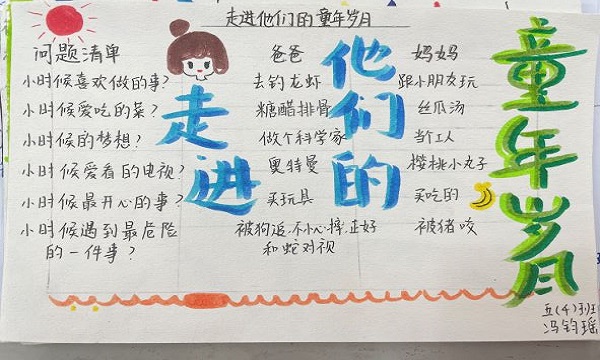 走进他们的童年岁月
问题清单 爸爸 妈妈
小时候喜欢做的事? 去钓龙虾 跟小朋友玩
小时候爱吃的菜? 糖醋排骨 丝瓜汤
小时候的梦想? 做个科学家 当个工人
小时候爱看的电视? 奥特曼 樱桃小丸子
小时候最开心的事? 买玩具 买吃的
小时候遇到最危险的一件事? 被狗追,不小心摔,正好和蛇对视 被猪咬
走进
他们的
童年岁月
五(4)班
冯钧瑶